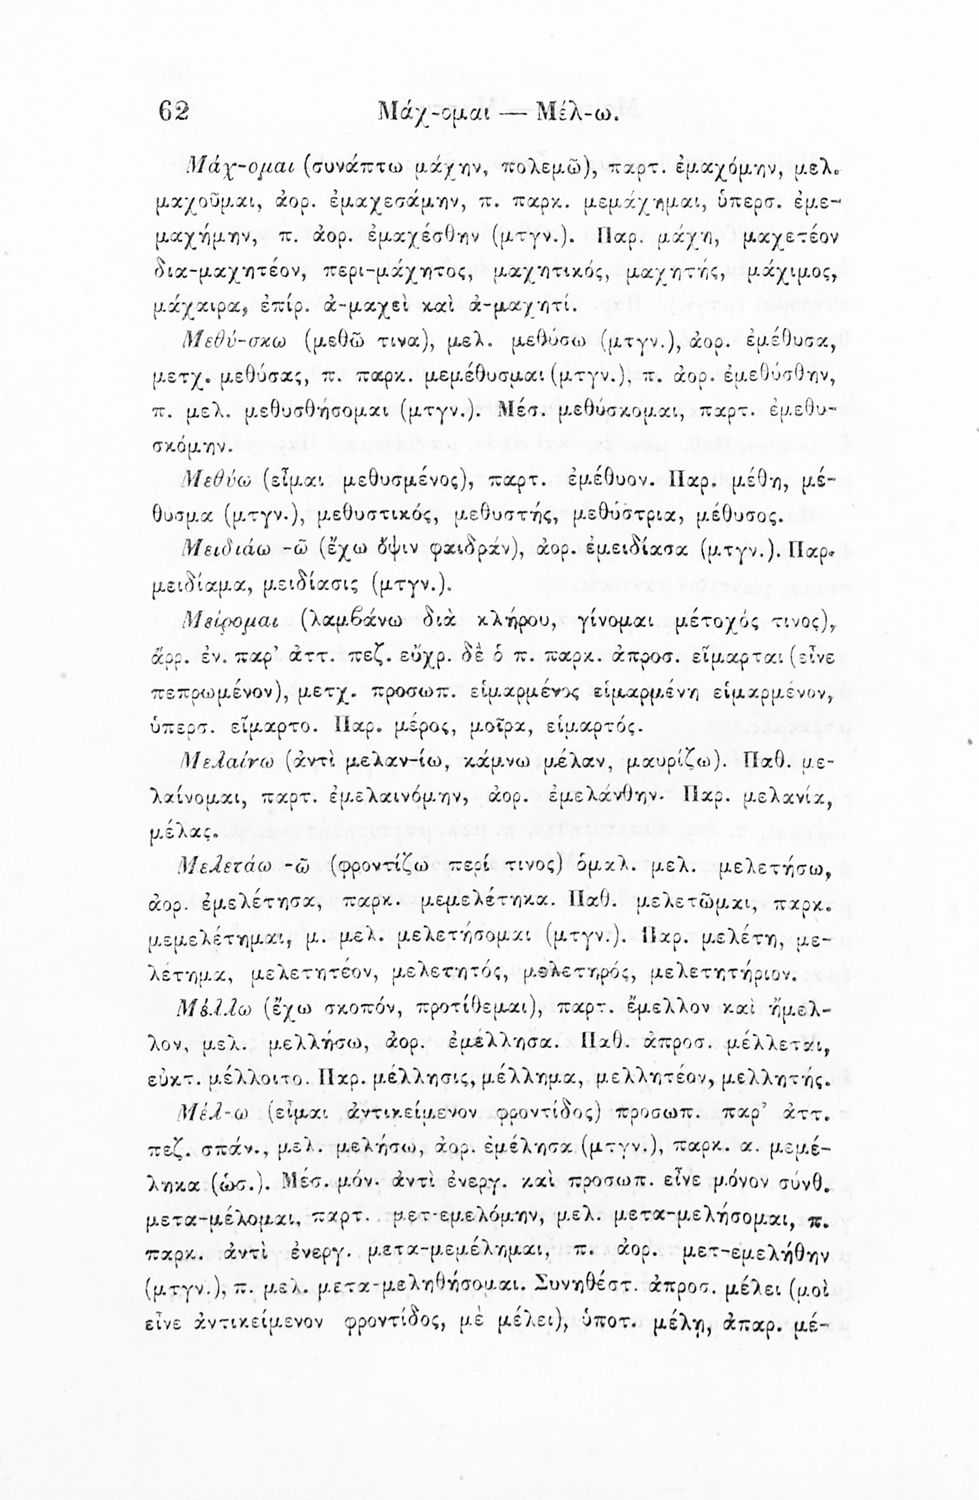 62 Μάχ-ομαι — Μέλ-ω.
Μάχ-ομαι (συνάπτω μάχην, πολεμῶ), παρτ. ἐμαχόμην, μελ.
μαχοῦμαι, ἀορ. ἐμαχεσάμην, π. παρκ. μεμάχημαι, ὑπερσ. ἐμε-
μαχήμην, π. ἀορ. ἐμαχέσθην (μτγν.). Παρ. μάχη, μαχετέον
δια-μαχητέον, περι-μάχητος, μαχητικός, μαχητής, μάχιμος,
μάχαιρα, ἐπίρ. ἀ-μαχεὶ καὶ ἀ-μαχητί.
Μεθύ-σκω (μεθῶ τινα), μελ. μεθύσω (μτγν.), ἀορ. ἐμέθυσα,
μετχ. μεθύσας, π. παρκ. μεμέθυσμαι (μτγν.), π. ἀορ. ἐμεθύσθην,
π. μελ. μεθυσθήσομαι (μτγν.). Μέσ. μεθύσκομαι, παρτ. ἐμεθυ-
σκόμην.
Μεθύω (εἶμαι μεθυσμένος), παρτ. ἐμέθυον. Παρ. μέθη, μέ-
θυσμα (μτγν.), μεθυστικός, μεθυστής, μεθύστρια, μέθυσος.
Μειδιάω -ῶ (ἔχω ὄψιν φαιδράν), ἀορ. ἐμειδίασα (μτγν.). Παρ.
μειδίαμα, μειδίασις (μτγν.).
Μείρομαι (λαμβάνω διὰ κλήρου, γίνομαι μέτοχός τινος),
ἄρρ. ἐν. παρ’ ἀττ. πεζ. εὔχρ. δὲ ὁ π. παρκ. ἀπροσ. εἵμαρται (εἶνε
πεπρωμένον), μετχ. προσωπ. εἱμαρμένος εἱμαρμένη εἱμαρμένον,
ὑπερσ. εἵμαρτο. Παρ. μέρος, μοῖρα, εἱμαρτός.
Μελαίνω (ἀντὶ μελαν-ίω, κάμνω μέλαν, μαυρίζω). Παθ. με-
λαίνομαι, παρτ. ἐμελαινόμην, ἀορ. ἐμελάνθην. Παρ. μελανία,
μέλας.
Μελετάω -ῶ (φροντίζω περί τινος) ὁμαλ. μελ. μελετήσω,
ἀορ. ἐμελέτησα, παρκ. μεμελέτηκα. Παθ. μελετῶμαι, παρκ.
μεμελέτημαι, μ. μελ. μελετήσομαι (μτγν.). Παρ. μελέτη, με-
λέτημα, μελετητέον, μελετητός, μελετηρός, μελετητήριον.
Μέλλω (ἔχω σκοπόν, προτίθεμαι), παρτ. ἔμελλον καὶ ἤμελ-
λον, μελ. μελλήσω, ἀορ. ἐμέλλησα. Παθ. ἀπροσ. μέλλεται,
εὐκτ. μέλλοιτο. Παρ. μέλλησις, μέλλημα, μελλητέον, μελλητής.
Μέλ-ω (εἶμαι ἀντικείμενον φροντίδος) προσωπ. παρ’ ἀττ.
πεζ. σπάν., μελ. μελήσω, ἀορ. ἐμέλησα (μτγν.), παρκ. α. μεμέ-
ληκα (ὡσ.). Μέσ. μόν. ἀντὶ ἐνεργ. καὶ προσωπ. εἶνε μόνον σύνθ.
μετα-μέλομαι, παρτ. μετ-εμελόμην, μελ. μετα-μελήσομαι, π.
παρκ. ἀντὶ ἐνεργ. μετα-μεμέλημαι, π. ἀορ. μετ-εμελήθην
(μτγν.), π. μελ. μετα-μεληθήσομαι. Συνηθέστ. ἀπροσ. μέλει (μοὶ
εἶνε ἀντικείμενον φροντίδος, μὲ μέλει), ὑποτ. μέλῃ, ἀπαρ. μέ-